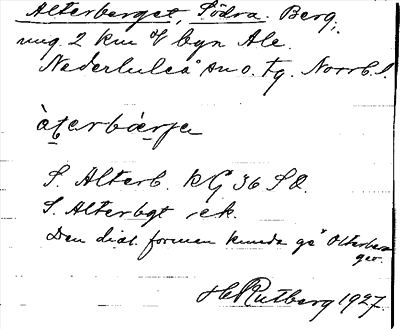 Alterberget, Södra. Berg,
ung. 2 km öf byn Ale.
Nederluleå sn o. tg. Norrb. l.
àṭerbær̀je
S. Alterb. kG 36 SO.
S. Alterbgt ek.
Den dial. formen kunde ge "Olterber
get.
H Rutberg 1927.